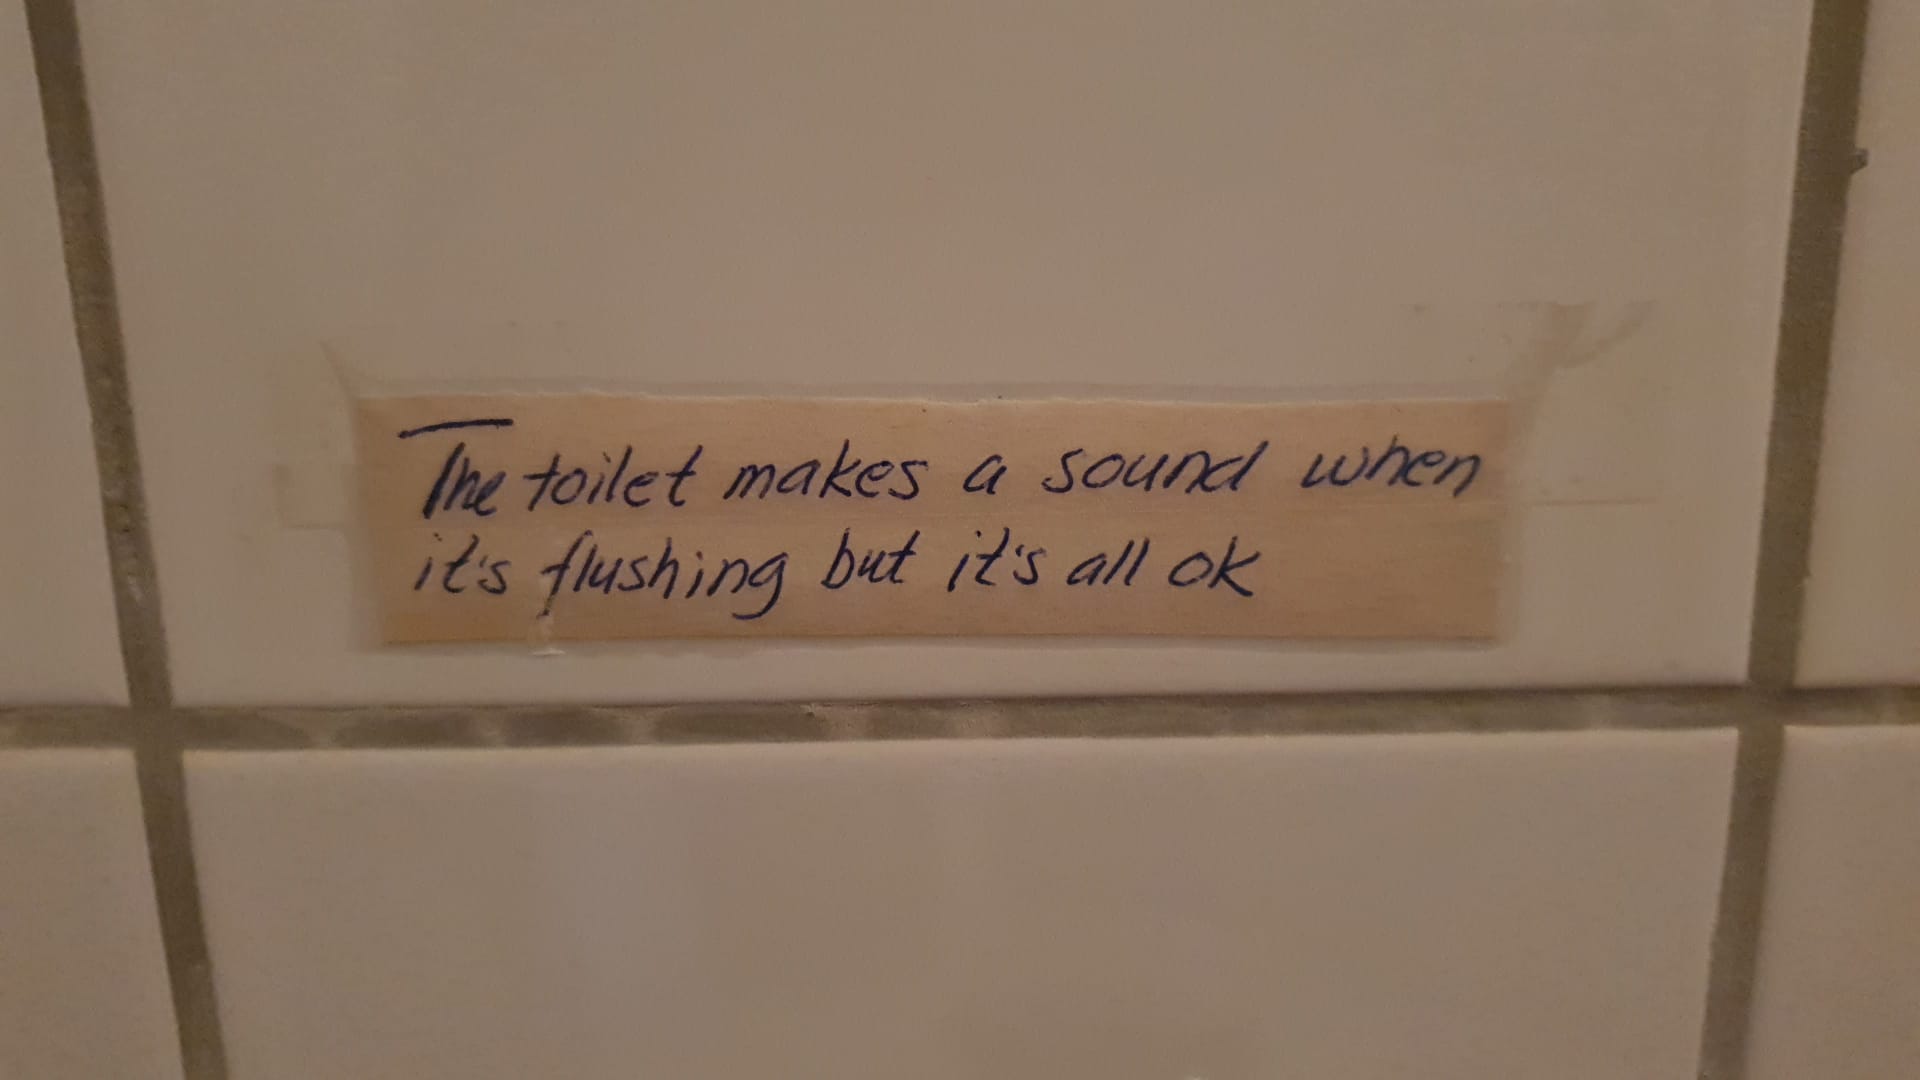 The toilet makes a sound when
it's flushing but it's all ok